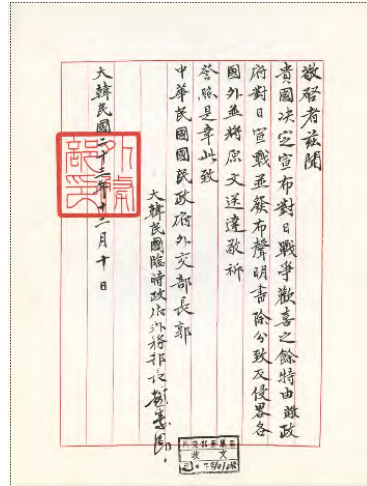 敬啓者茲聞
貴國决定宣布對日戰爭歡喜之餘特由敝政
府對日宣戰並發布聲明書除分致反侵畧各
國外並將原文送達敬祈
詧照是幸此致
中華民國國民政府外交部長郭
大韓民國臨時政府外務部長趙素昂
大韓民國二十三年十二月十日
外務部印